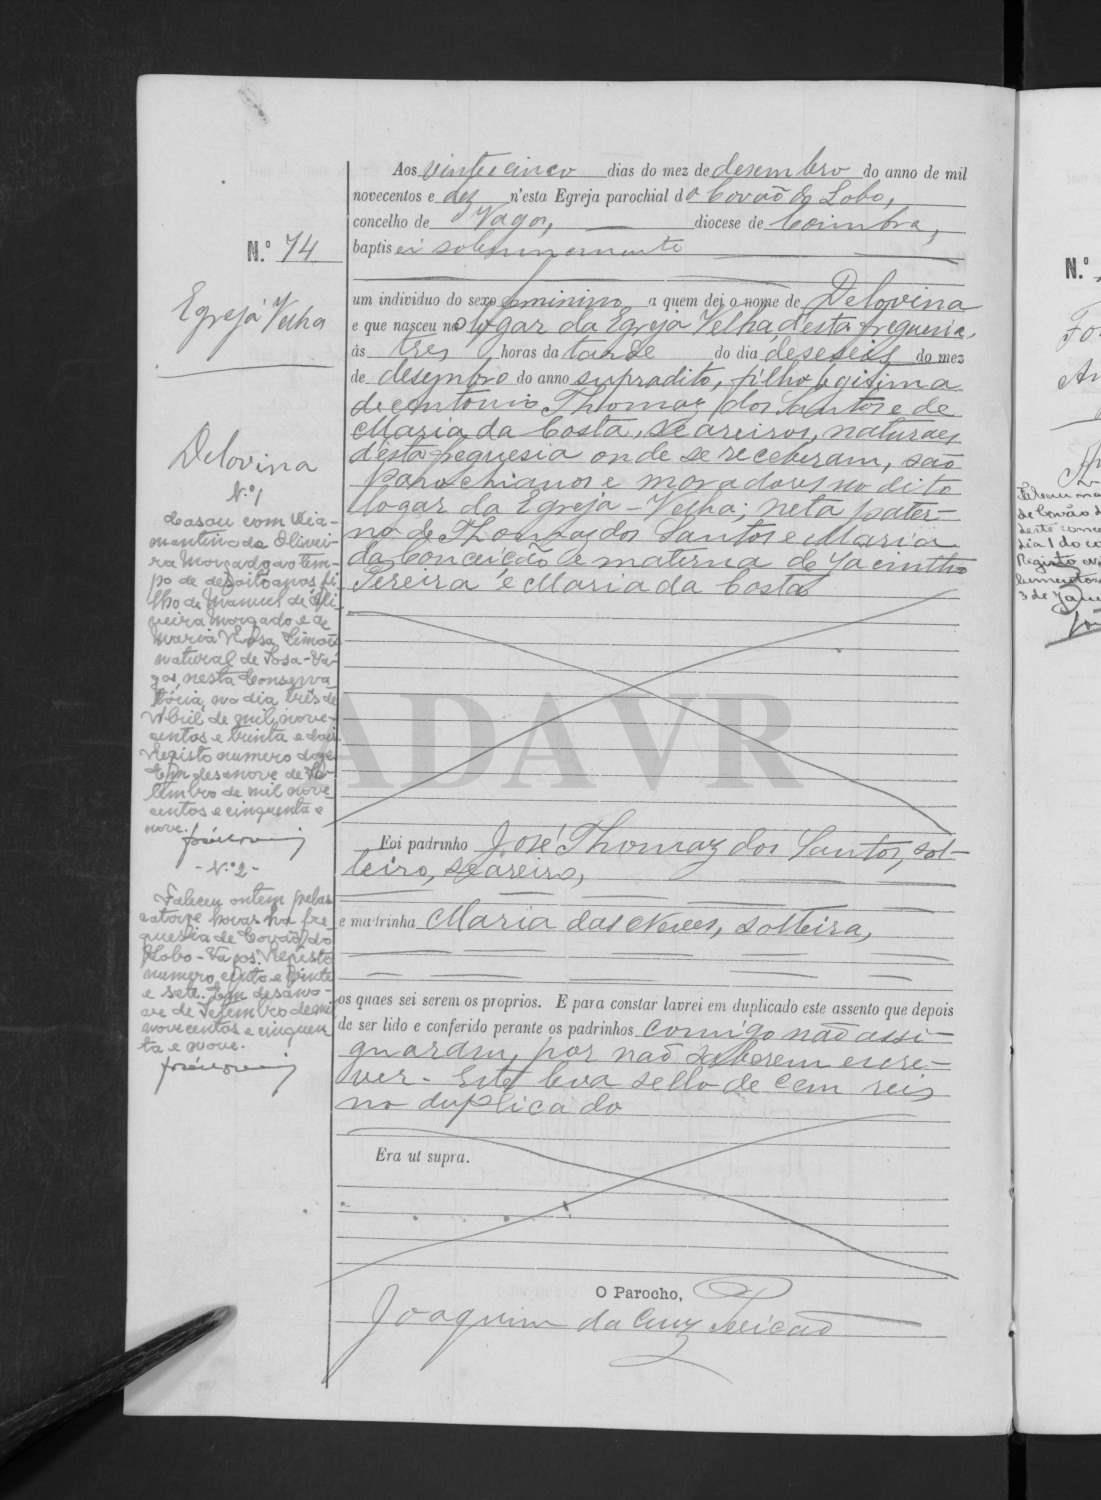 Aos vinte e cinco dias do mez de desembro do anno de mil
novecentos e dez n'esta Egreja parochial do Covão do Lobo,
concelho de Vagos, diocese de Coimbra,
baptisei solemnemente
um individuo do sexo feminino a quem dei o nome de Delovina
e que nasceu no logar da Egreja Velha, d'esta freguesia,
ás tres horas da tarde do dia deseseis do mez
de desembro do anno supradito, filha legitima
de Antonio Thomaz dos Santos e de
Maria da Costa, seareiros, naturaes
d'esta freguesia onde se receberam, são
parochianos e moradores no dito
logar da Egreja-Velha; neta pater-
na de Thomaz dos Santos e Maria
da Conceição e materna de Jacintho
Pereira e Maria da Costa
Foi padrinho José Thomaz dos Santos, sol-
teiro, seareiro,
e madrinha Maria das Neves, solteira,
os quaes sei serem os proprios. E para constar lavrei em duplicado este assento que depois
de ser lido e conferido perante os padrinhos comigo não assi-
gnaram, por não saberem escre-
ver. Este leva sello de cem reis
no duplicado
Era ut supra.
O Parocho,
Joaquim da Cruz
N.º 74
Egreja Velha
Delovina
N.º 1
Casou com Dia-
mantino de Olivei-
ra Morgado ao tem-
po de dezoito anos, fi-
lho de Manuel de Oli-
veira Morgado e de
Maria Rosa Simões
natural de Sosa-Va-
gos, nesta Conserva-
tória, no dia três de
Abril de mil nove-
centos e trinta e dois
Registo numero doze
Em desanove de Se-
tembro de mil nove-
centos e cinquenta e
nove.
- N.º 2 -
Faleceu ontem pelas
catorze horas na fre-
guesia de Covão do
Lobo - Vagos. Registo
numero cento e vinte
e sete. Em desano-
ve de Setembro de mil
novecentos e cinquen-
ta e nove.
ADAVR
N.º